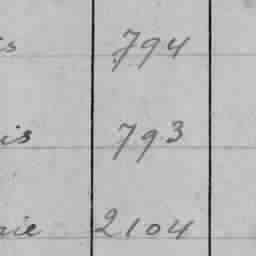 is 794
is 793
ie 2104